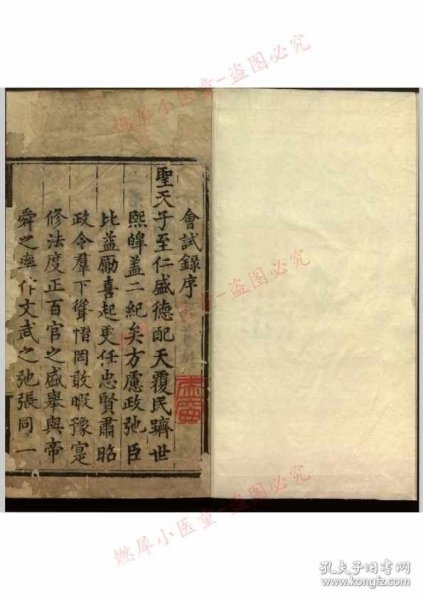 會試錄序
聖天子至仁盛德配天覆民躋世
熙皥蓋二紀矣方慮政弛臣
比益勵喜起更任忠賢肅昭
政令羣下聳慴罔敢暇豫寔
修法度正百官之盛舉與帝
舜之率作文武之弛張同一
燃犀小医童-盗图必究
燃犀小医童-盗图必究
燃犀小医童-盗图必究
孔夫子旧书网
www.kongfz.com